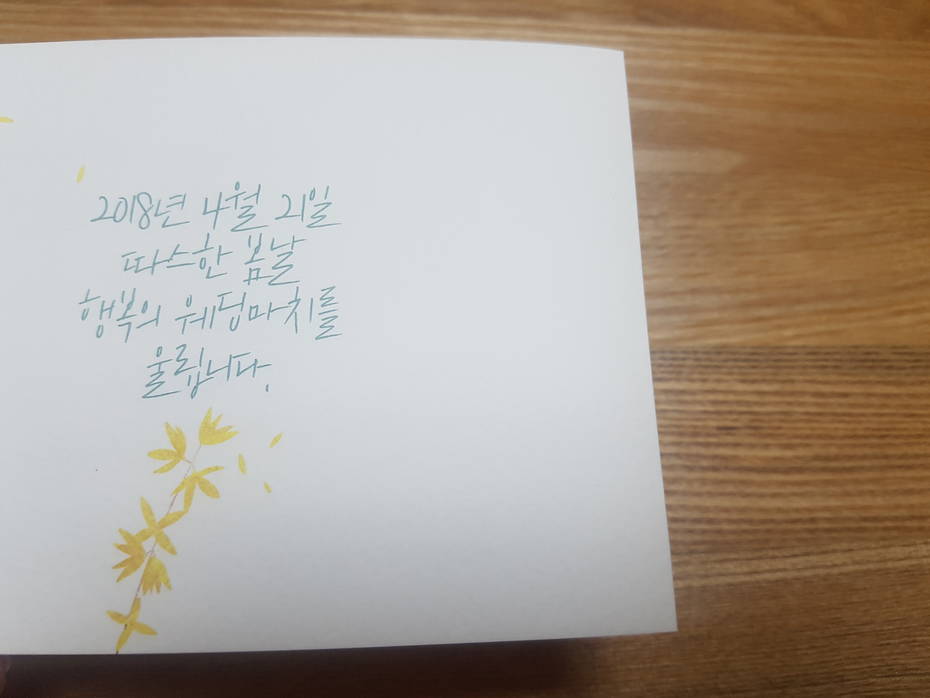 2018년 4월 21일
따스한 봄날
행복의 웨딩마치를
울립니다.